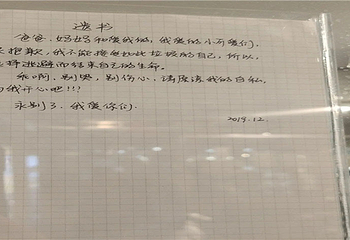 遗书
爸爸、妈妈和爱我的,我爱的小可爱们,
抱歉,我不能接受如此垃圾的自己,所以,
择逃避而结束自己的生命。
乖啊,别哭,别伤心,请原谅我的自私,
我开心吧!!!
永别了,我爱你们。
2019.12.